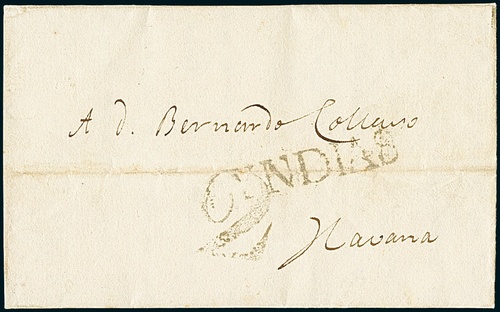 A d. Bernardo
YNDIAS
2
Havana